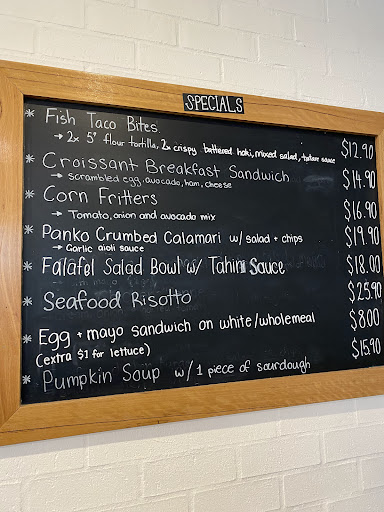 SPECIALS
* Fish Taco Bites $12.90
→ 2x 5" flour tortilla, 2x crispy battered hoki, mixed salad, tartare sauce
* Croissant Breakfast Sandwich $14.90
→ scrambled egg, avocado, ham, cheese
* Corn Fritters $16.90
→ Tomato, onion and avocado mix
* Panko Crumbed Calamari w/ salad + chips $19.90
→ Garlic aioli sauce
* Falafel Salad Bowl w/ Tahini Sauce $18.00
* Seafood Risotto $25.90
* Egg + mayo sandwich on white/wholemeal $8.00
(extra $1 for lettuce)
* Pumpkin Soup w/ 1 piece of sourdough $15.90